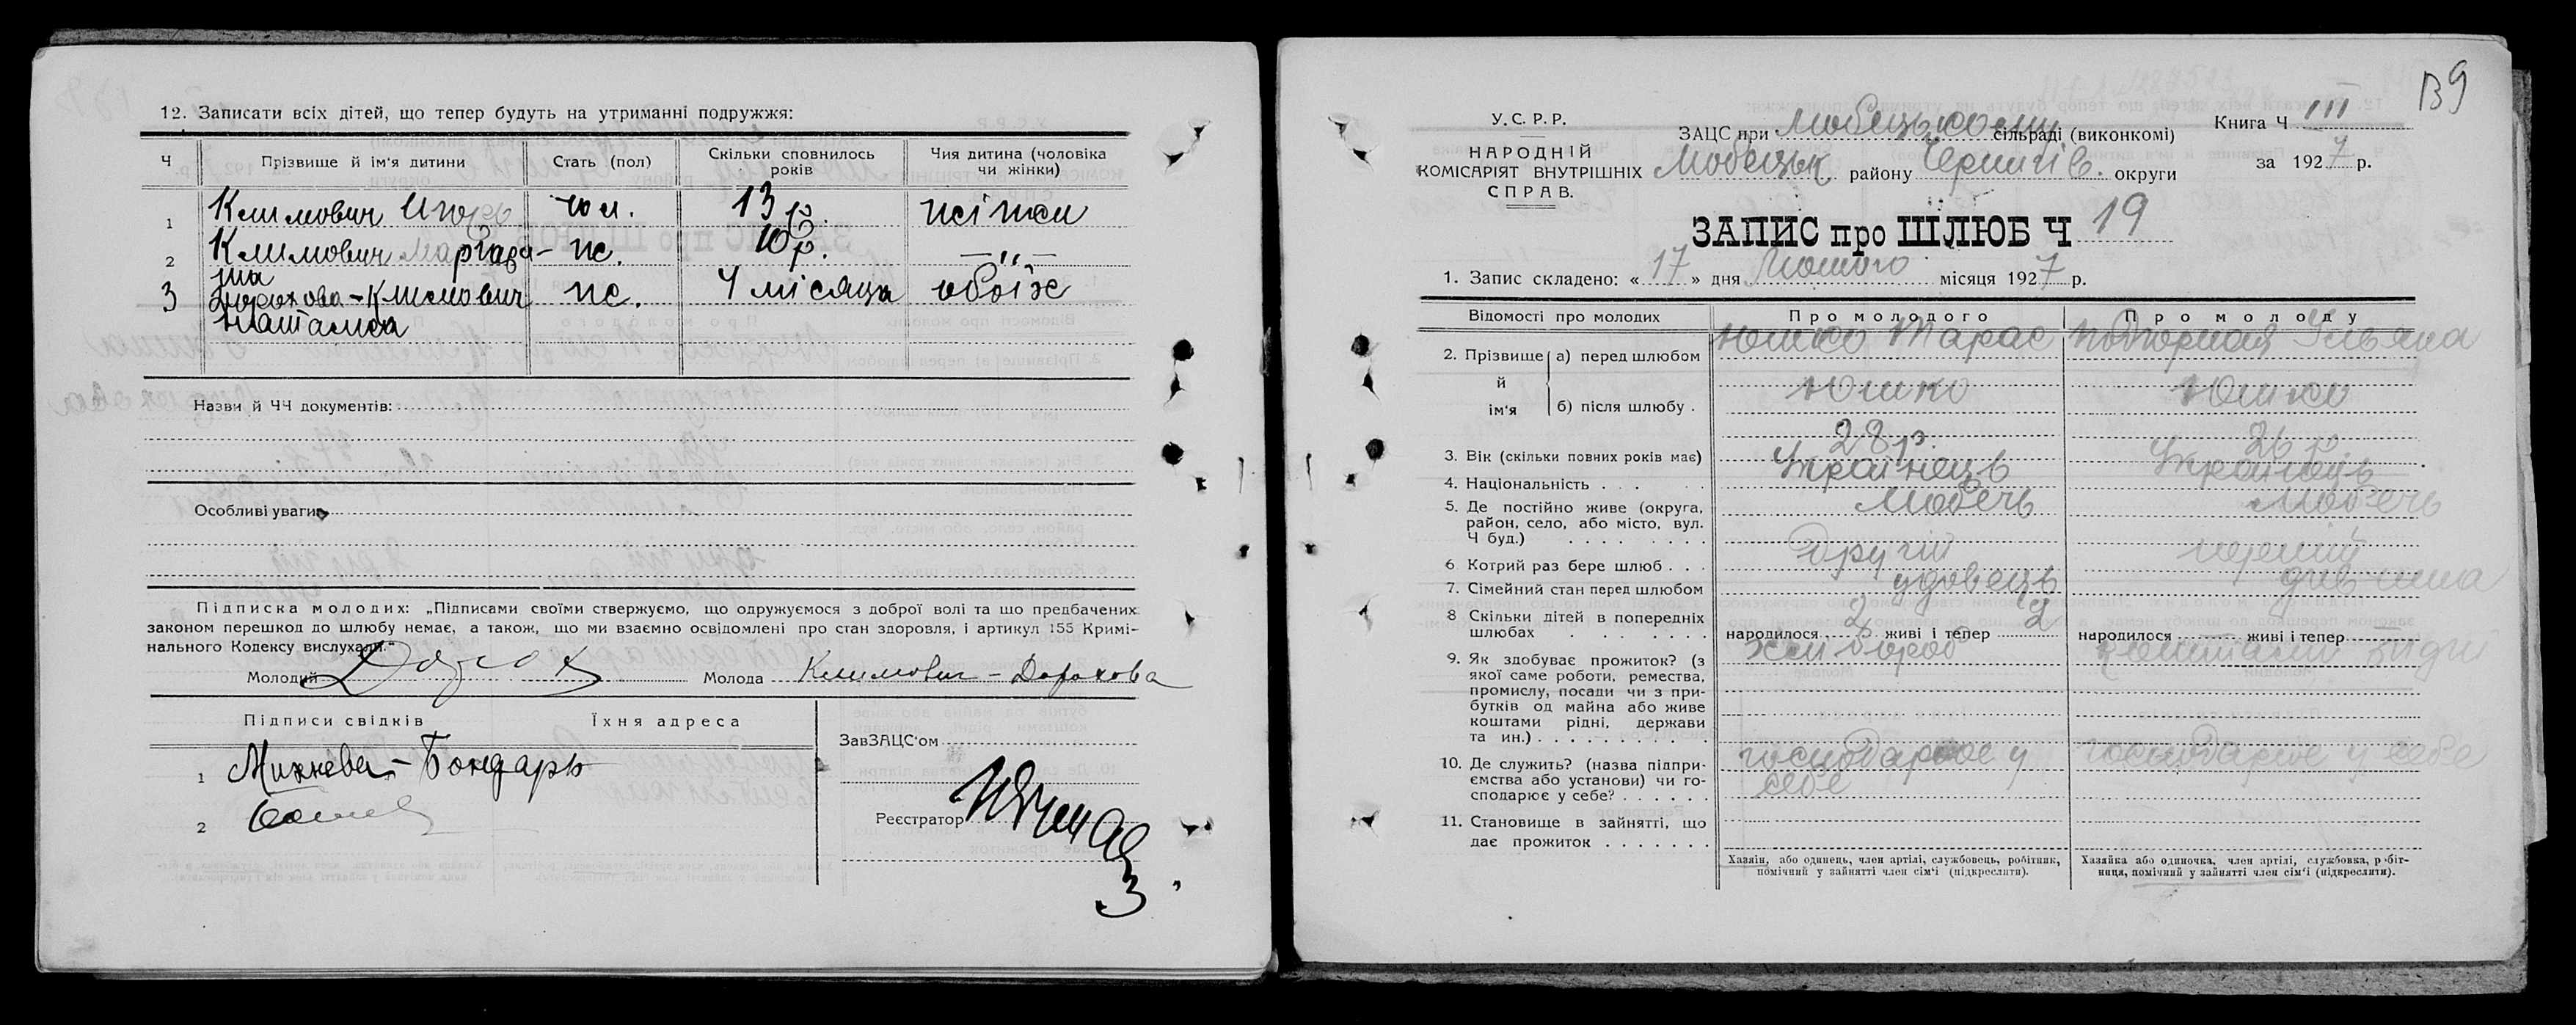 12. Записати всіх дітей, що тепер будуть на утриманні подружжя:
Ч | Прізвище й ім'я дитини | Стать (пол) | Скільки сповнилось років | Чия дитина (чоловіка чи жінки)
1 | Климович Игорь | чол. | 13 р. | жінки
2 | Климович Маргари- | ж. | 10 р. | — „ —
та
3 | Дорохова-Климович | ж. | 4 місяця | обоїх
Наталия
Назви й ЧЧ документів:
Особливі уваги:
Підписка молодих: „Підписами своїми стверджуємо, що одружуємося з доброї волі та що предбачених
законом перешкод до шлюбу немає, а також, що ми взаємно освідомлені про стан здоровля, і артикул 155 Кримі-
нального Кодексу вислухали."
Молодий Дорохов Молода Климович - Дорохова
Підписи свідків Їхня адреса
1 Михнева-Бондарь
2
ЗавЗАЦС'ом
Реєстратор
139
У.С.Р.Р.
НАРОДНІЙ
КОМІСАРІЯТ ВНУТРІШНІХ
СПРАВ.
ЗАЦС при Любецькому сільраді (виконкомі)
Любецьк району Чернигів. округи
Книга Ч III
за 1927 р.
ЗАПИС про ШЛЮБ Ч 19
1. Запис складено: « 17 » дня Лютого місяця 1927 р.
Відомості про молодих | Про молодого | Про молоду
2. Прізвище й ім'я а) перед шлюбом | Юшко Тарас | Подгорная Ульяна
б) після шлюбу . | Юшко | Юшко
3. Вік (скільки повних років має) | 28 р. | 26 р.
4. Національність . . . | Українець | Українець
5. Де постійно живе (округа, | Любечь | Любечь
район, село, або місто, вул.
Ч буд.) . . . .
6. Котрий раз бере шлюб . . . | другій | перший
7. Сімейний стан перед шлюбом | удовець | дивчина
8 Скільки дітей в попередніх
шлюбах . . . . . | народилося 2 живі і тепер 2 | народилося живі і тепер
9. Як здобуває прожиток? (з | хлибороб | коштами рідни
якої саме роботи, ремества,
промислу, посади чи з при-
бутків од майна або живе
коштами рідні, держави
та ин.) . . . . . . . . . .
10. Де служить? (назва підпри- | господарює у | господарює у себе
ємства або установи) чи го- | себе
сподарює у себе? . . . . . .
11. Становище в зайнятті, що
дає прожиток . . . . . . .
Хазяін, або одинець, член артілі, службовець, робітник,
помічний у зайнятті член сім'ї (підкреслити).
Хазяйка або одиночка, член артілі, службовка, робіт-
ниця, помічний у зайнятті член сім'ї (підкреслити).